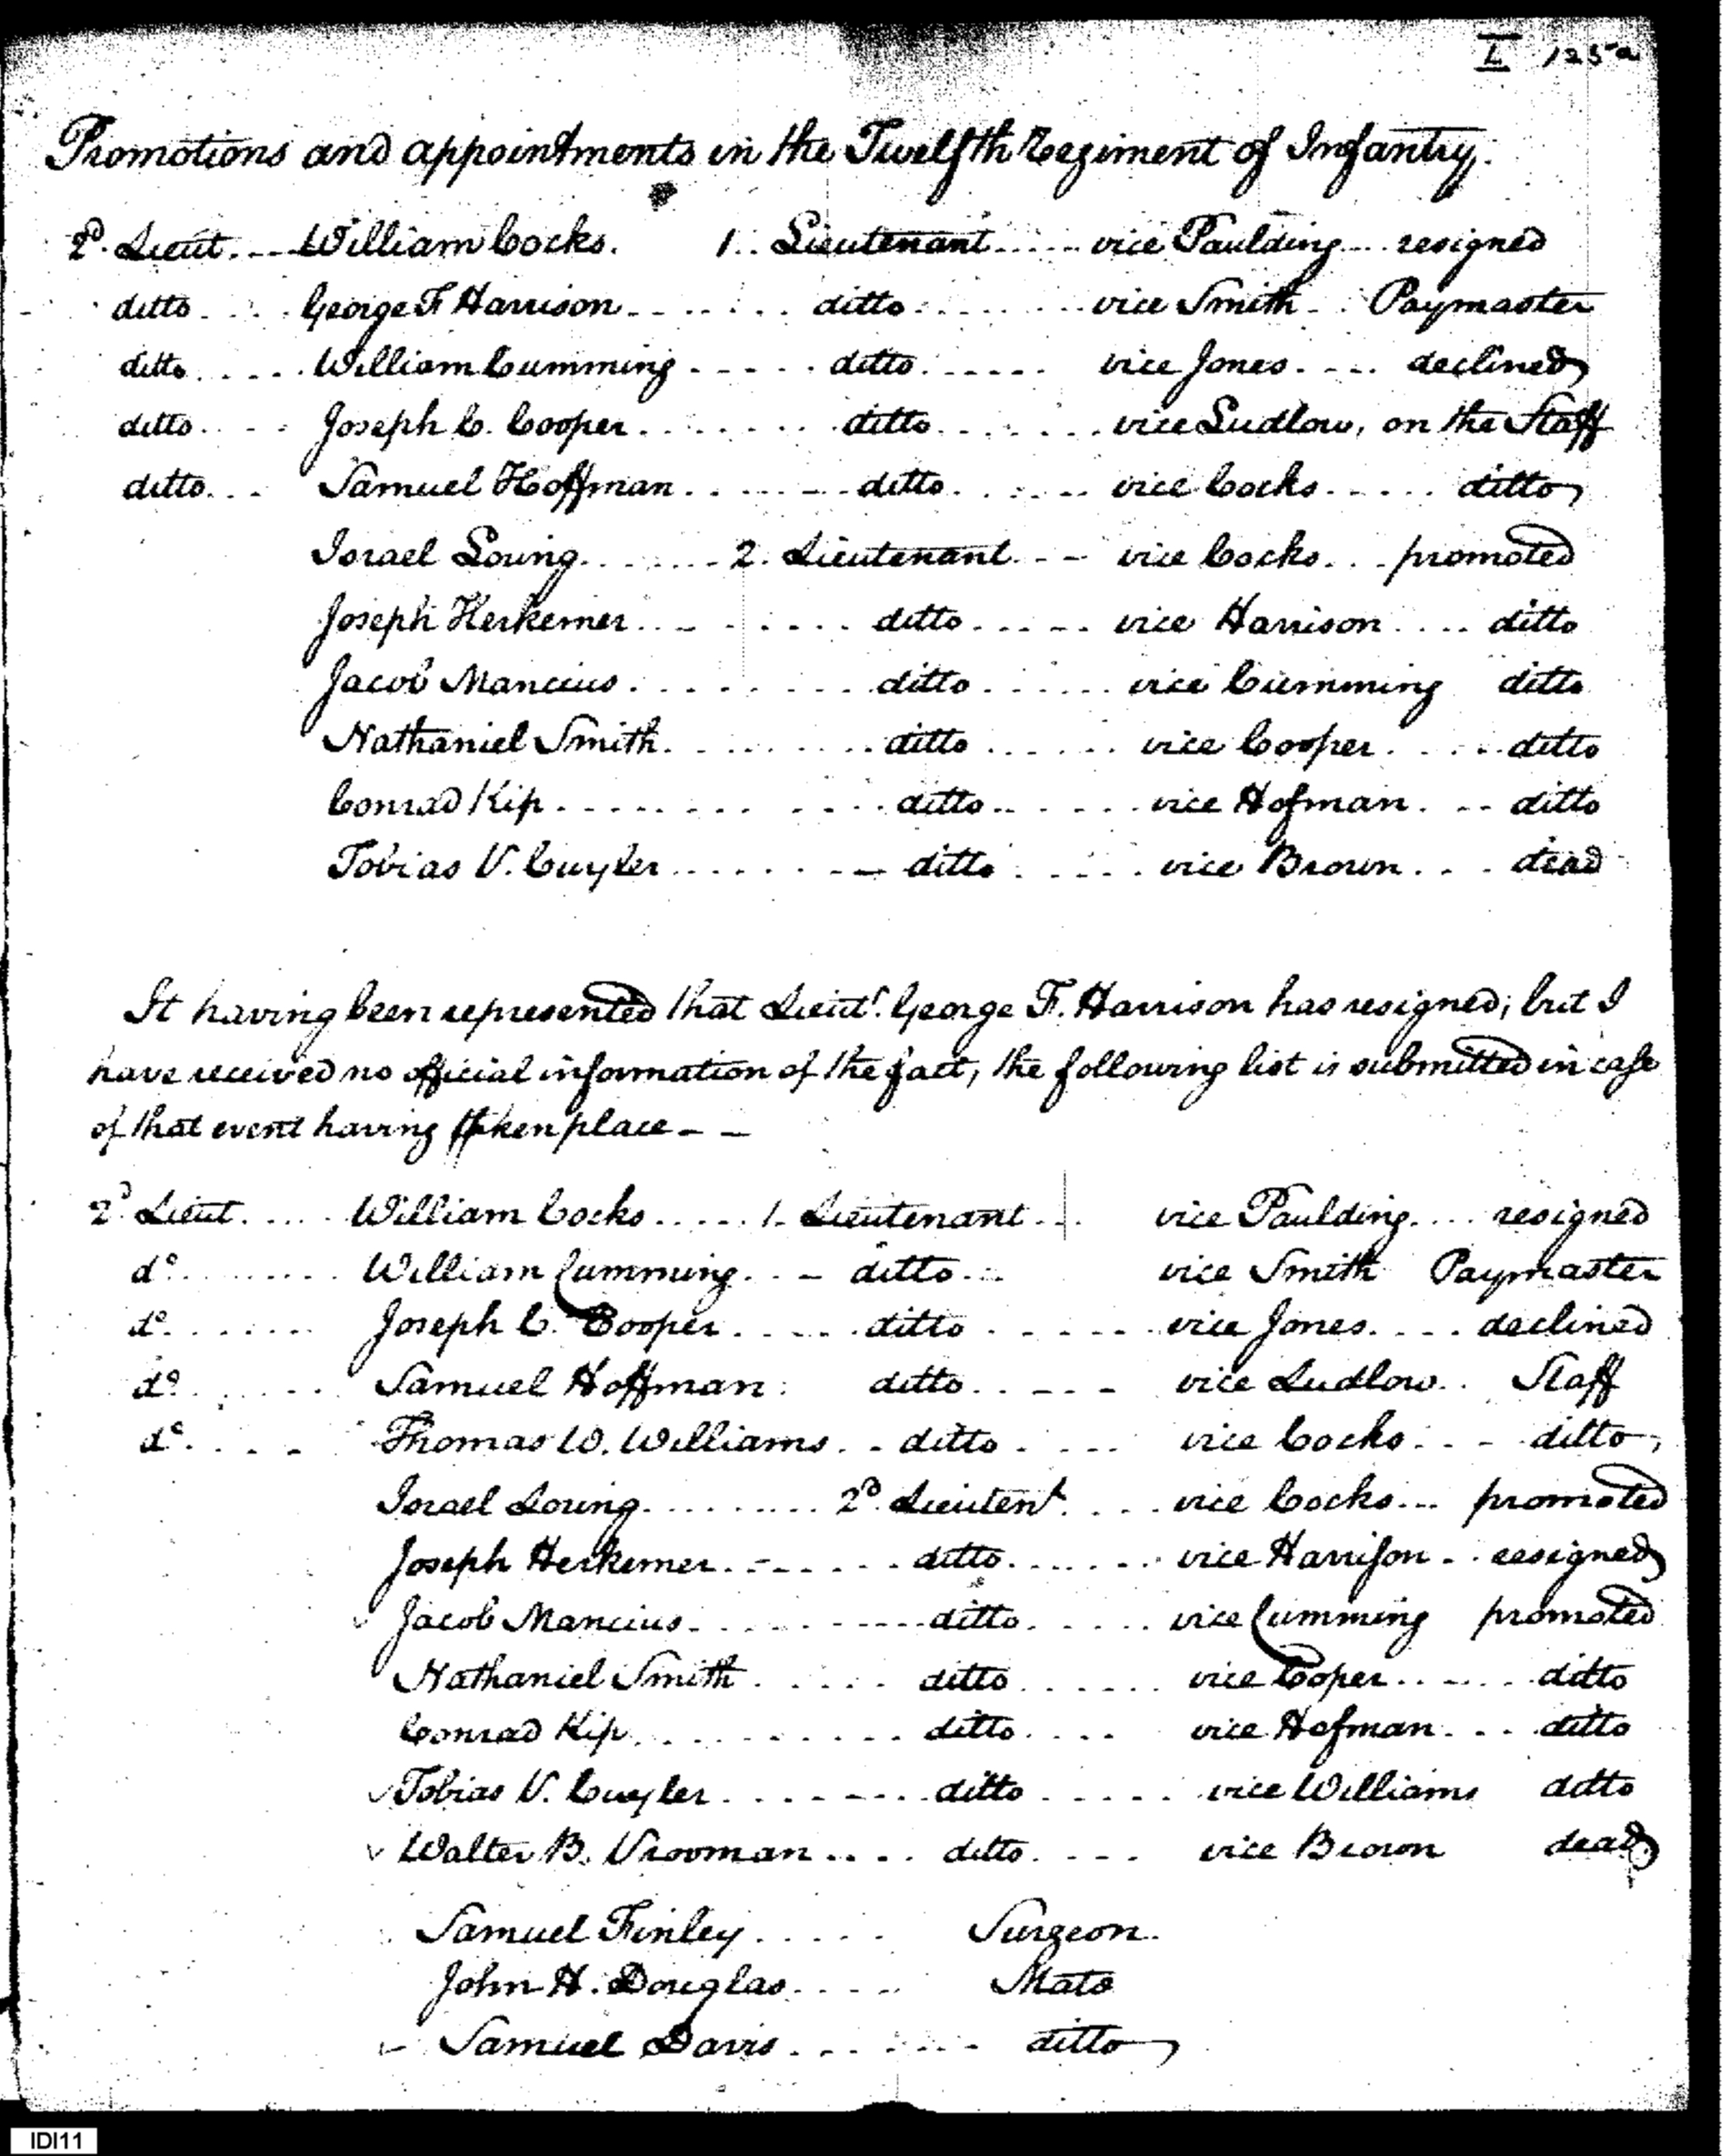 I 125a
Promotions and appointments in the Twelfth Regiment of Infantry.
2d. Lieut. William Cocks. 1. Lieutenant vice Paulding resigned
ditto George F Harrison ditto vice Smith Paymaster
ditto William Cumming ditto vice Jones declined
ditto Joseph C. Cooper ditto vice Ludlow, on the Staff
ditto Samuel Hoffman ditto vice Cocks ditto
Israel Loring 2. Lieutenant vice Cocks promoted
Joseph Herkemer ditto vice Harrison ditto
Jacob Mancius ditto vice Cumming ditto
Nathaniel Smith ditto vice Cooper ditto
Conrad Kip ditto vice Hofman ditto
Tobias V. Cuyler ditto vice Brown dead
It having been represented that Lieut. George F. Harrison has resigned; but I
have received no official information of the fact, the following list is submitted in case
of that event having taken place - -
2d. Lieut. William Cocks 1. Lieutenant vice Paulding resigned
do. William Cumming ditto vice Smith Paymaster
do. Joseph C. Cooper ditto vice Jones declined
do. Samuel Hoffman ditto vice Ludlow Staff
do. Thomas W. Williams ditto vice Cocks ditto
Israel Loring 2d. Lieutent. vice Cocks promoted
Joseph Herkemer ditto vice Harrison resigned
Jacob Mancius ditto vice Cumming promoted
Nathaniel Smith ditto vice Cooper ditto
Conrad Kip ditto vice Hofman ditto
Tobias V. Cuyler ditto vice Williams ditto
Walter B. Vrooman ditto vice Brown dead
Samuel Finley Surgeon.
John H. Douglas Mate
Samuel Davis ditto
IDI11